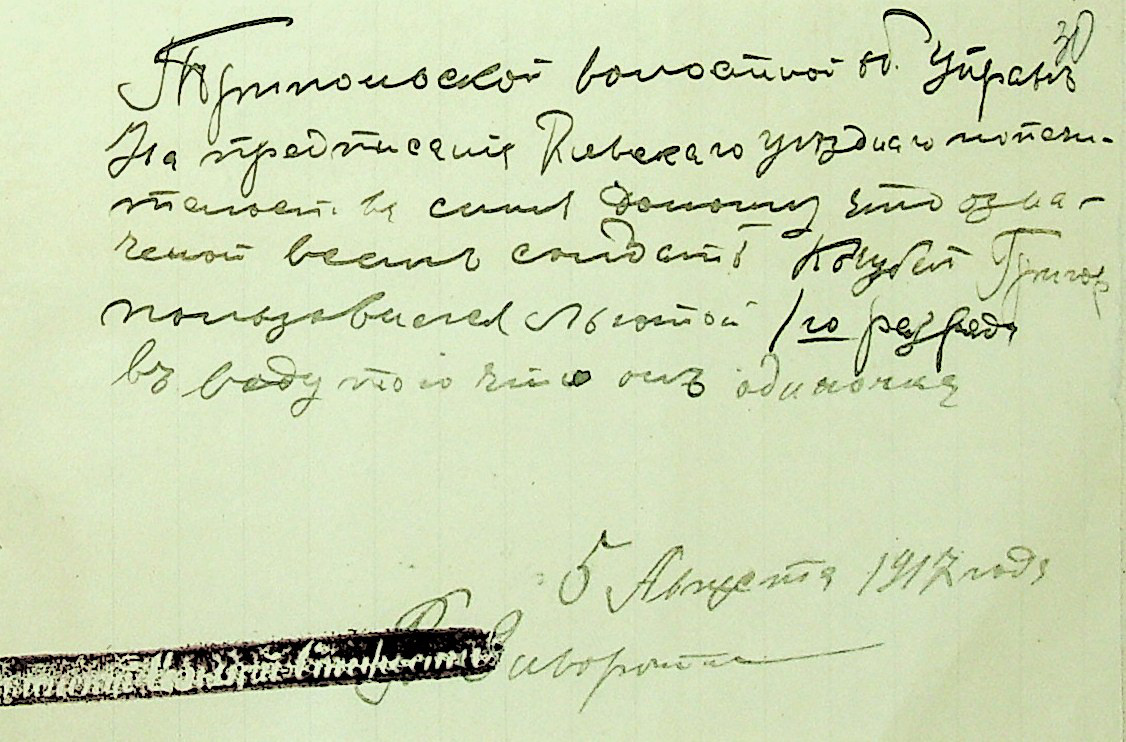 30
Трипольской волостной об. Управъ
На предписания Киевскаго уѣзднаго попечи-
тельства симъ доношу что озна-
ченой солдатъ Кочубей Григор
пользовался льготой 1го разряда
въ виду того что онъ одиночка
5 Августа 1917 года